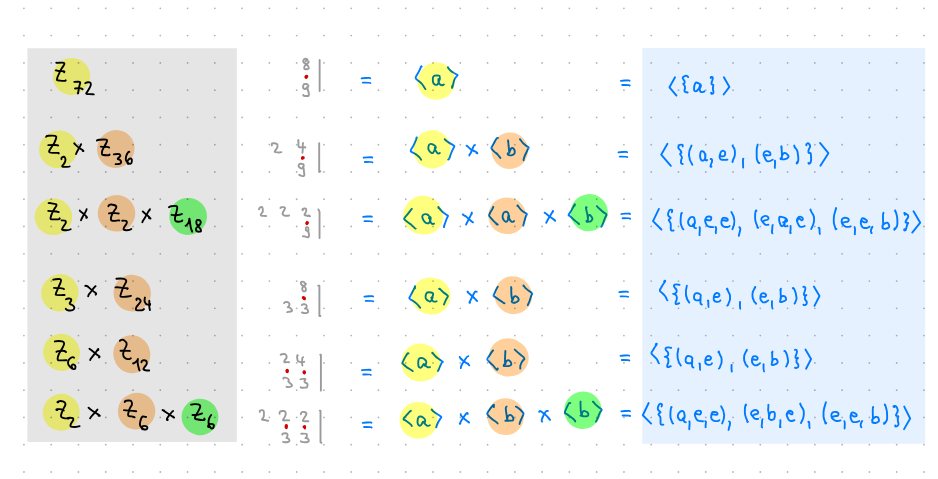 Z₇₂ 8·9| = ⟨a⟩ = ⟨{a}⟩
Z₂ × Z₃₆ 2 4·9| = ⟨a⟩ × ⟨b⟩ = ⟨{(a,e), (e,b)}⟩
Z₂ × Z₂ × Z₁₈ 2 2 2·9| = ⟨a⟩ × ⟨a⟩ × ⟨b⟩ = ⟨{(a,e,e), (e,a,e), (e,e,b)}⟩
Z₃ × Z₂₄ 3 8·3| = ⟨a⟩ × ⟨b⟩ = ⟨{(a,e), (e,b)}⟩
Z₆ × Z₁₂ 2·3 4·3| = ⟨a⟩ × ⟨b⟩ = ⟨{(a,e), (e,b)}⟩
Z₂ × Z₆ × Z₆ 2 2·3 2·3| = ⟨a⟩ × ⟨b⟩ × ⟨b⟩ = ⟨{(a,e,e), (e,b,e), (e,e,b)}⟩